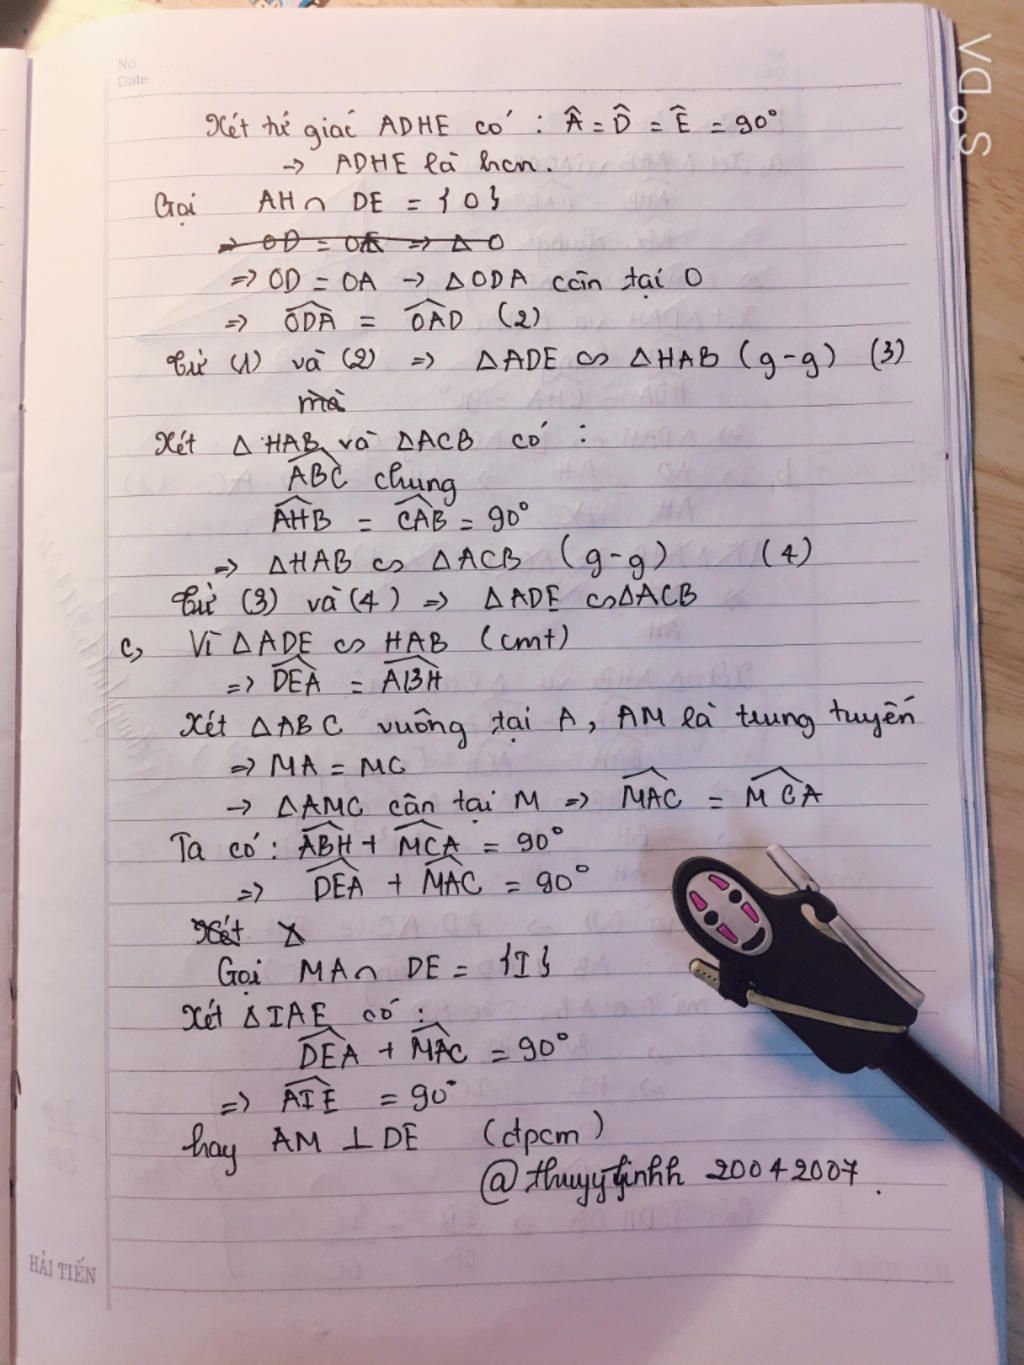 No.
Date
Xét tứ giác ADHE có : Â = D̂ = Ê = 90°
→ ADHE là hcn.
Gọi AH ∩ DE = {O}
⇒ OD = OA → ΔODA cân tại O
⇒ ODA = OAD (2)
Từ (1) và (2) ⇒ ΔADE ∽ ΔHAB (g-g) (3)
mà
Xét ΔHAB và ΔACB có :
ABC chung
AHB = CAB = 90°
⇒ ΔHAB ∽ ΔACB (g-g) (4)
Từ (3) và (4) ⇒ ΔADE ∽ ΔACB
c, Vì ΔADE ∽ HAB (cmt)
⇒ DEA = ABH
Xét ΔABC vuông tại A, AM là trung tuyến
⇒ MA = MC
→ ΔAMC cân tại M ⇒ MAC = MCA
Ta có : ABH + MCA = 90°
⇒ DEA + MAC = 90°
Xét Δ
Gọi MA ∩ DE = {I}
Xét ΔIAE có :
DEA + MAC = 90°
⇒ AIE = 90°
hay AM ⊥ DE (đpcm)
@thuyytinhh 20042007.
HẢI TIẾN